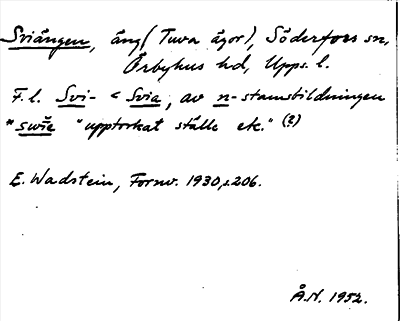 Sviängen, äng (Tuva ägor), Söderfors sn,
Örbyhus hd, Upps. l.
F. l. Svi- < Svia, av n-stamsbildningen
*swīe "upptorkat ställe etc." (?)
E. Wadstein, Fornv. 1930, s. 206.
Å.N. 1952.